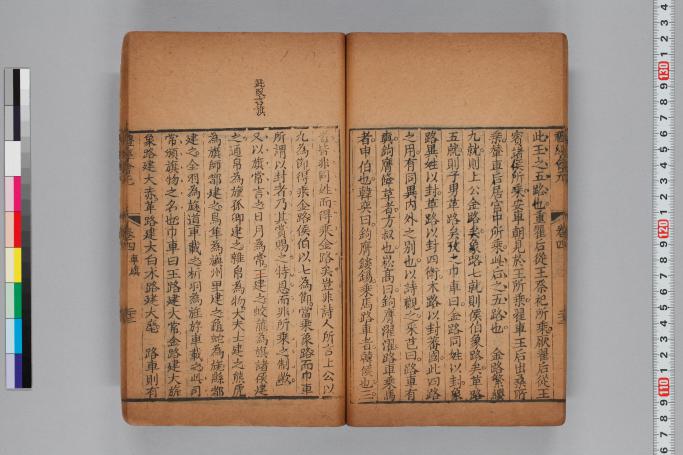 此王之五路也重翟后從王祭祀所乘厭翟后從王
賓諸侯所乘安車朝見於王所乘翟車王后出桑所
乘輦車后居宮中所乘此后之五路也 金路繁纓
九就則上公金路矣象路七就則侯伯象路矣革路
五就則子男革路矣攷之巾車曰金路同姓以封象
路異姓以封革路以封四衛木路以封蕃國此四路
之用有同異內外之別也以詩觀之采芑曰路車有
奭鉤膺鞗革者方叔也崧高曰鉤膺濯濯路車乘馬
者申伯也韓奕曰鉤膺鏤鍚乘馬路車者韓侯也三
者皆非同姓而得乘金路矣豈非詩人所言上公以
九為節得乘金路侯伯以七為節當乘象路而巾車
所謂以封者乃其賞賜之特恩而非所乘之制歟
又以旗常言之日月為常王建之蛟龍為旗諸侯建
之通帛為旜孤卿建之雜帛為物大夫士建之熊虎
為旗師都建之鳥隼為旟州里建之龜蛇為旐縣鄙
建之全羽為旞道車載之析羽為旌斿車載之此司
常頒旗物之名也巾車曰玉路建大常金路建大旂
象路建大赤革路建大白木路建大麾 路車則有
卷四 車旗
卷四